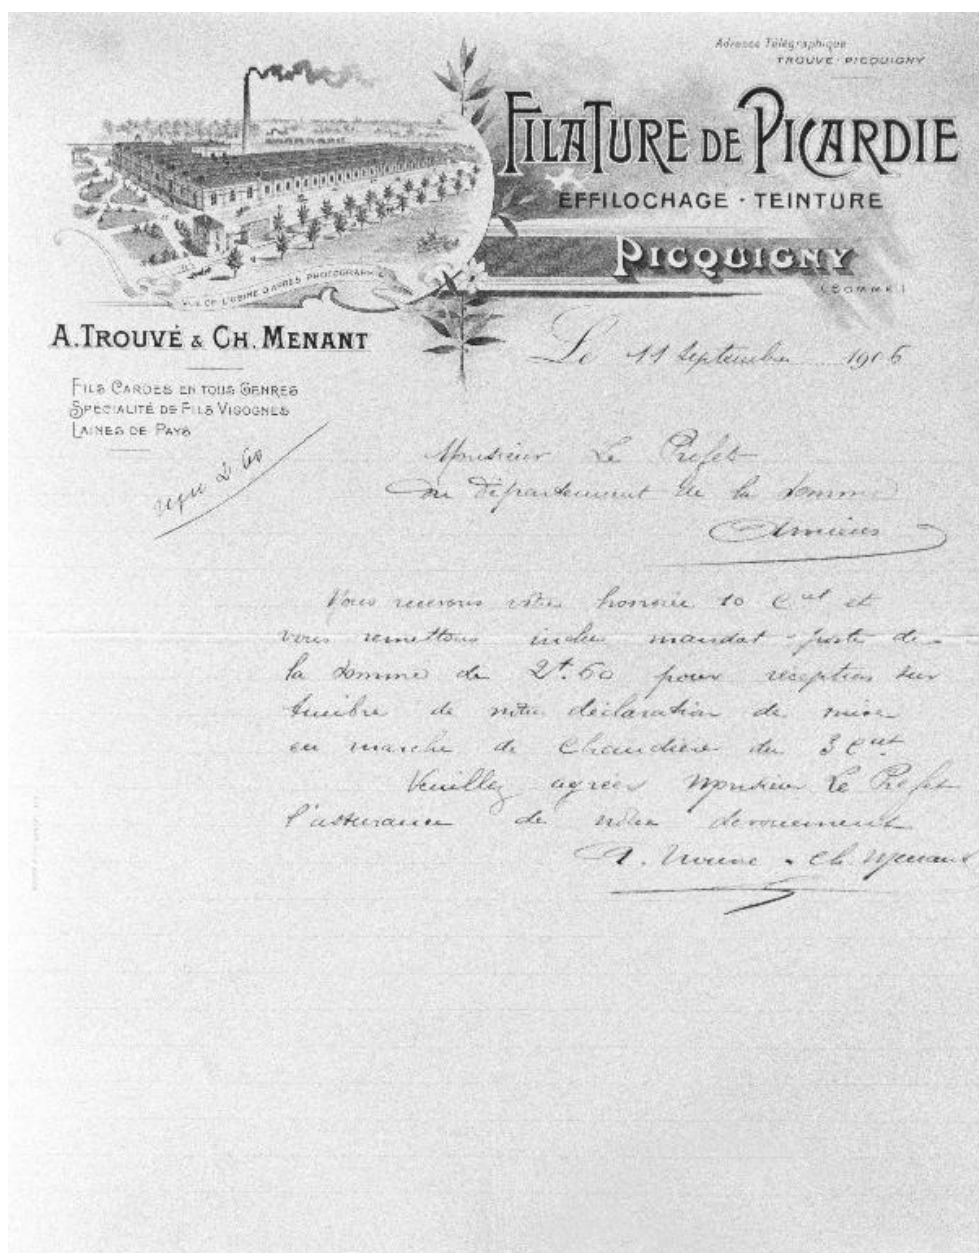 Adresse Télégraphique
TROUVÉ-PICQUIGNY
FILATURE DE PICARDIE
EFFILOCHAGE · TEINTURE
PICQUIGNY
(SOMME)
VUE DE L'USINE D'APRÈS PHOTOGRAPHIE
A. TROUVÉ & CH. MENANT
FILS CARDÉS EN TOUS GENRES
SPÉCIALITÉ DE FILS VIGOGNES
LAINES DE PAYS
Le 11 Septembre 1906
reçu 2 60
Monsieur Le Préfet
du département de la Somme
Amiens
Vous recevons votre honorée 10 Cut et
vous remettons inclus mandat-poste de
la somme de 2f.60 pour réception sur
timbre de notre déclaration de mise
en marche de Chaudière du 3 cut
Veuillez agréer Monsieur Le Préfet
l'assurance de notre dévouement
A. Trouvé & Ch. Menant